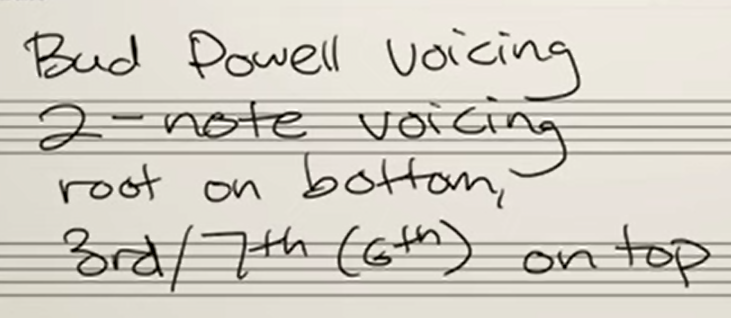 Bud Powell Voicing
2-note voicing
root on bottom,
3rd/7th (6th) on top